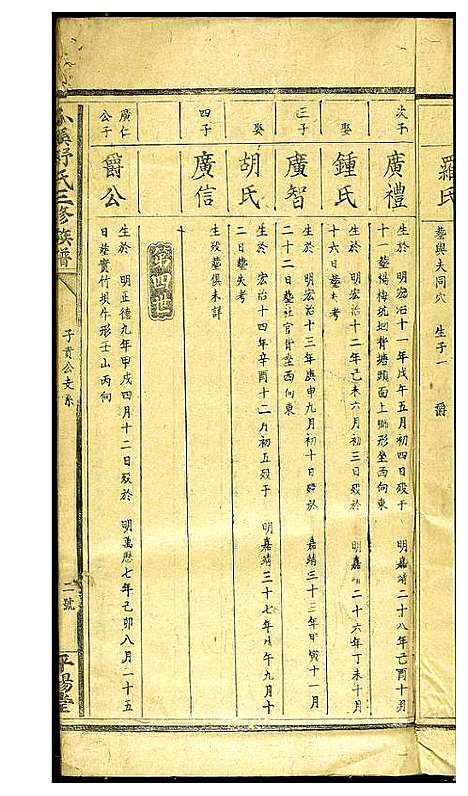 羅氏
塟與夫同穴 生子一 爵
次子
廣禮
生於 明宏治十一年戊午五月初四日殁于 明嘉靖二十八年己酉十月
十一塟楊梅坑垇背塘頭面上獅形坐西向東
娶
鍾氏
生於 明宏治十二年己未六月初三日殁於 明嘉靖二十六年丁未十月
十六日塟失考
三子
廣智
生於 明宏治十三年庚申九月初十日殁於 嘉靖三十三年甲寅十一月
二十二日塟社官背坐西向東
娶
胡氏
生於 宏治十四年辛酉十二月初五殁于 明嘉靖三十七年戊午九月十
二日塟失考
四子
廣信
生殁塟俱未詳
第四世
廣仁
公子
爵公
生於 明正德九年甲戌四月十二日殁於 明萬歷七年己卯八月二十五
日塟實竹垻牛形壬山丙向
溪舒氏三修族譜
子貴公支系
二號
平陽堂